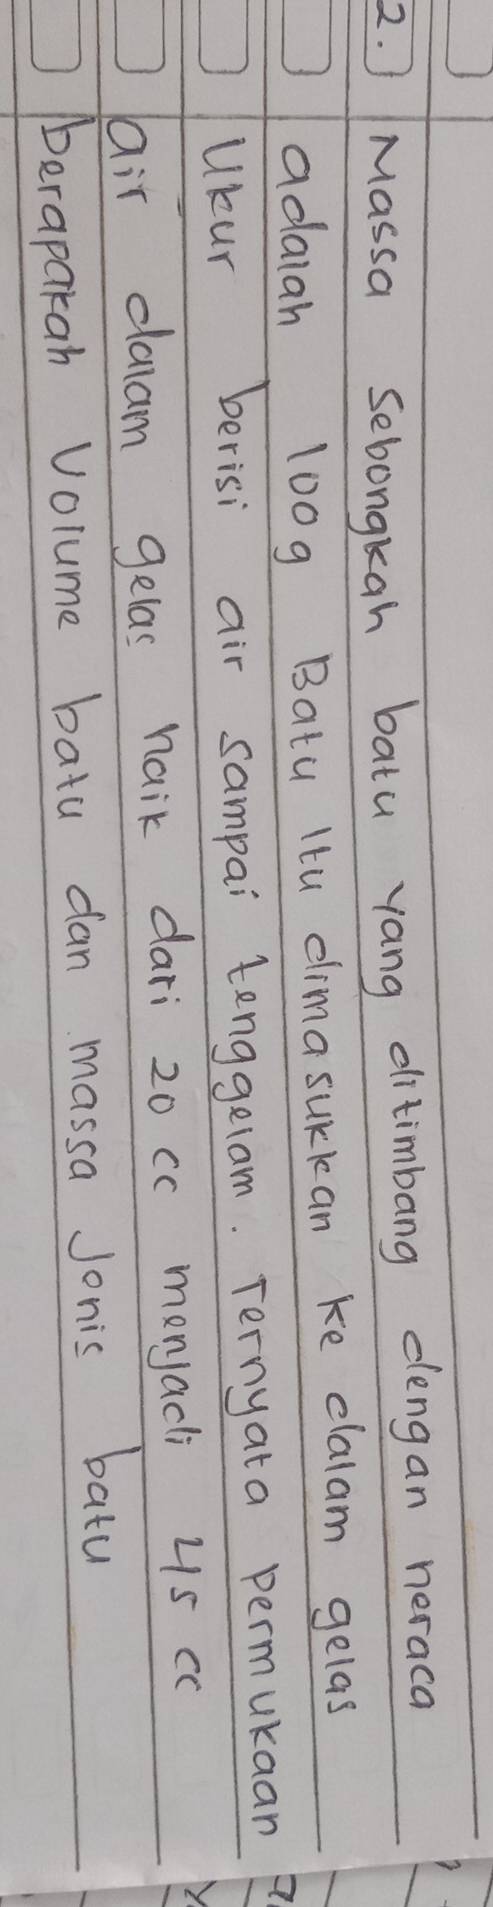 2. Massa Sebongkah batu yang ditimbang dengan neraca
adalah 100g Batu Itu dimasukkan ke dalam gelas
Ukur berisi air sampai tenggelam. Ternyata permukaan
air dalam gelas naik dari 20 cc menjadi 45 cc
berapakah Volume batu dan massa Jenis batu